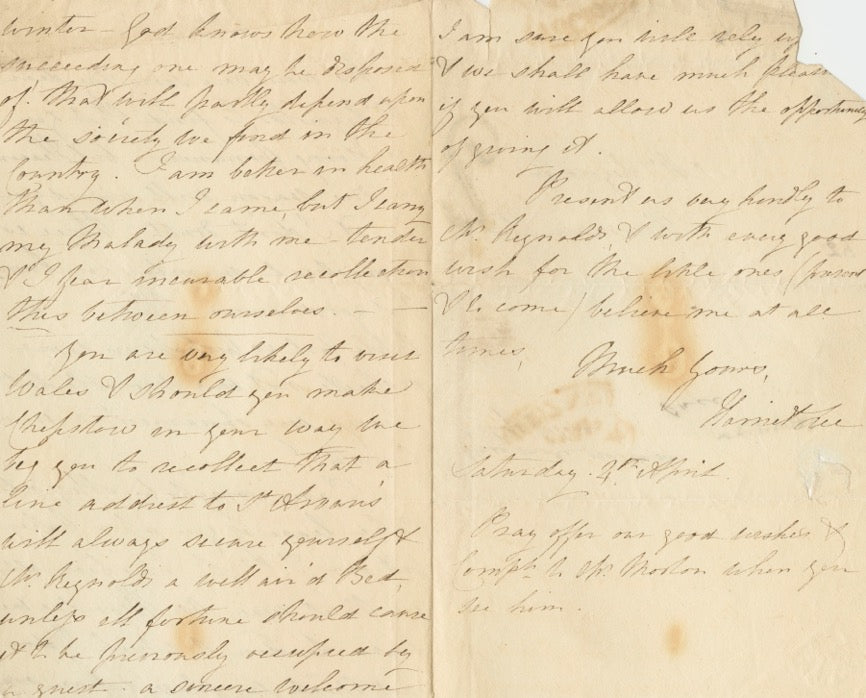 winter – God knows how the
succeeding one may be disposed
of: that will partly depend upon
the society we find in the
Country. I am better in health
than when I came, but I carry
my Malady with me – tender
& I fear incurable recollection
this between ourselves. – –
You are very likely to visit
Wales & should you make
Chepstow in your way we
beg you to recollect that a
line addrest to St Arvans
will always secure yourself &
Mr. Reynolds a well air'd Bed,
unless ill fortune should cause
it to be previously occupied by
a guest. a sincere welcome
I am sure you will rely
& we shall have much
if you will allow us the opportunity
of giving it.
Present us very kindly to
Mr. Reynolds, & with every good
wish for the little ones (present
& to come) believe me at all
times,
Much Yours,
Harriet Lee
Saturday. April.
Pray offer our good wishes &
Compts. to Mr. Morton when you
see him.